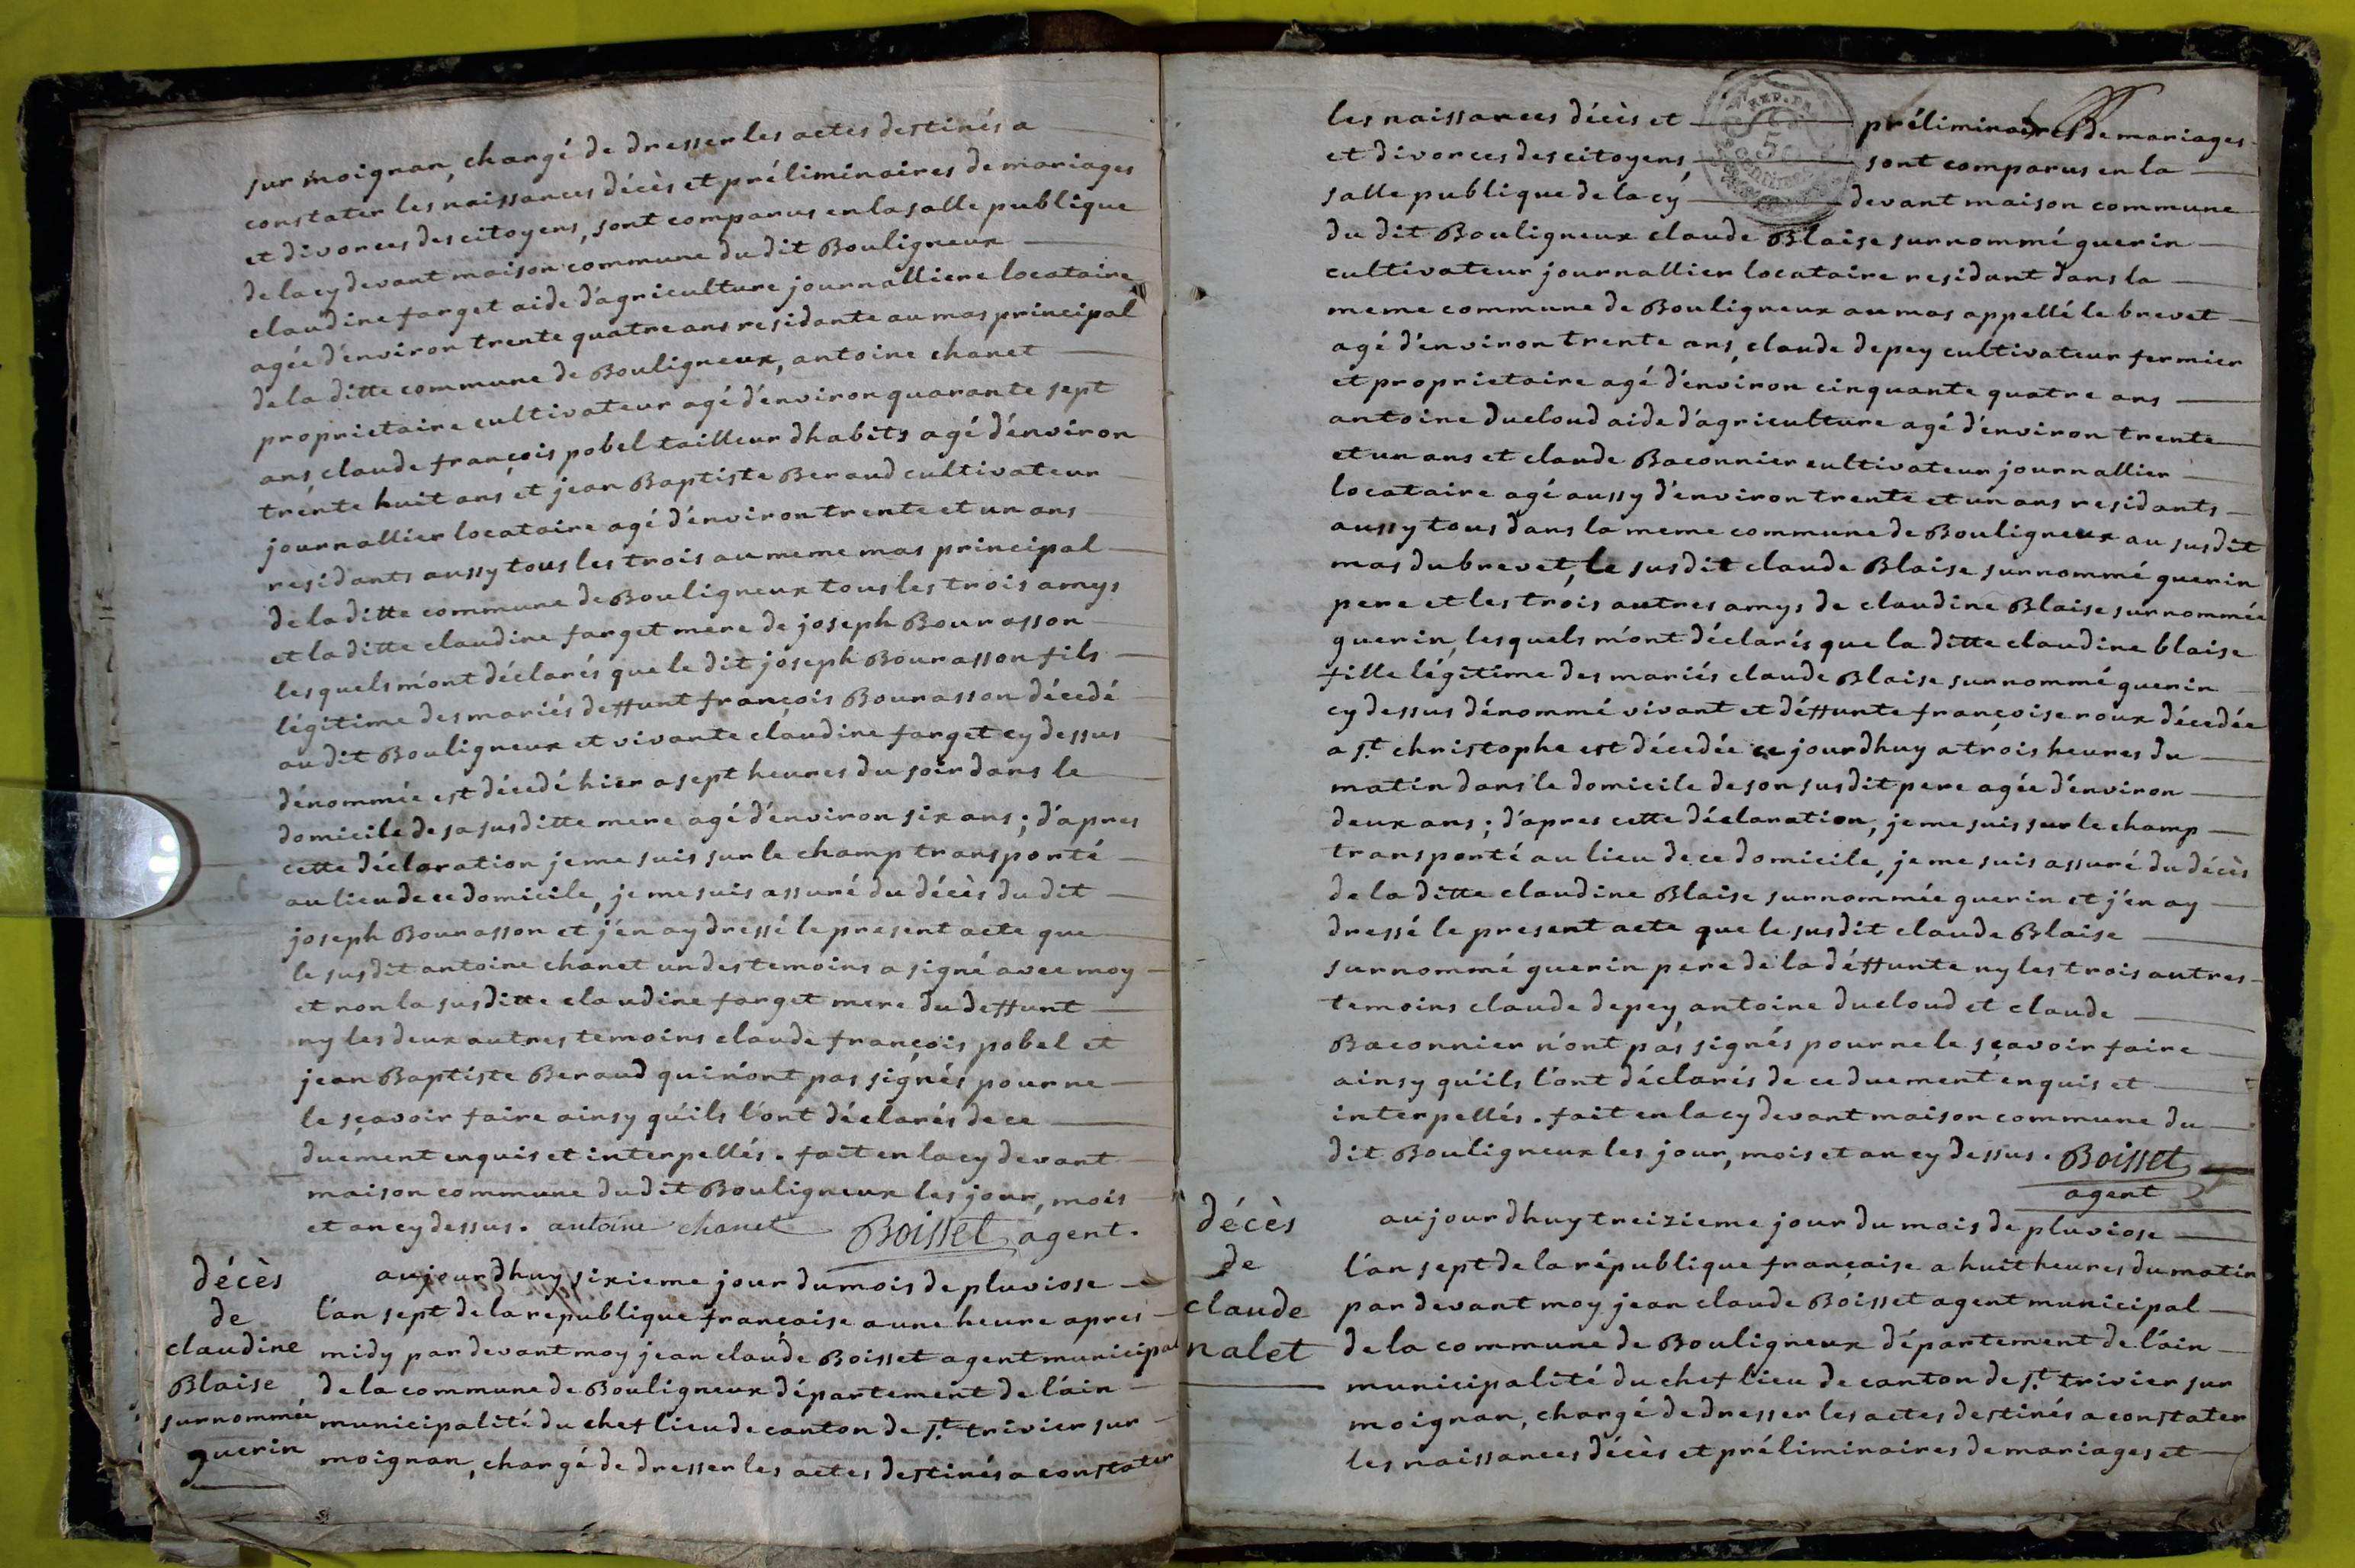 sur moignan, chargé de dresser les actes destinés a
constater les naissances décès et préliminaires de mariages
et divorces des citoyens, sont comparus en la salle publique
de la cy devant maison commune du dit Bouligneux
claudine farget aide d'agriculture journalliere locataire
agée d'environ trente quatre ans residante au mas principal
de la ditte commune de Bouligneux, antoine chanet
proprietaire cultivateur agé d'environ quarante sept
ans claude françois pobel tailleur dhabits agé d'environ
trente huit ans et jean Baptiste Beraud cultivateur
journallier locataire agé d'environ trente et un ans
residants aussy tous les trois au meme mas principal
de la ditte commune de Bouligneux tous les trois amys
et la ditte claudine farget mere de joseph Bourasson
lesquels m'ont déclarés que le dit joseph Bourasson fils
légitime des mariés deffunt françois Bourasson décedé
au dit Bouligneux et vivante claudine farget cy dessus
dénommée est décedé hier a sept heures du soir dans le
domicile de sa susditte mere agé d'environ six ans ; d'apres
cette déclaration je me suis sur le champ transporté
au lieu de ce domicile, je me suis assuré du décès du dit
joseph Bourasson et j'en ay dressé le present acte que
le susdit antoine chanet un des temoins a signé avec moy
et non la susditte claudine farget mere du deffunt
ny les deux autres temoins claude françois pobel et
jean Baptiste Beraud qui n'ont pas signés pour ne
le sçavoir faire ainsy qu'ils l'ont déclarés de ce
duement enquis et interpellés. fait en la cy devant
maison commune du dit Bouligneux les jour, mois
et an cy dessus. antoine chanet Boisset agent.
décès
de
claudine
Blaise
surnommée
guerin
aujourdhuy sixieme jour du mois de pluviose
l'an sept de la republique française a une heure apres
midy par devant moy jean claude Boisset agent municipal
de la commune de Bouligneux département de l'ain
municipalité du chef lieu de canton de St. trivier sur
moignan, chargé de dresser les actes destinés a constater
les naissances décès et préliminaires de mariages
et divorces des citoyens, sont comparus en la
salle publique de la cy devant maison commune
du dit Bouligneux claude Blaise surnommé guerin
cultivateur journallier locataire residant dans la
meme commune de Bouligneux au mas appellé le brevet
agé d'environ trente ans, claude depey cultivateur fermier
et proprietaire agé d'environ cinquante quatre ans
antoine ducloud aide d'agriculture agé d'environ trente
et un ans et claude Baconnier cultivateur journallier
locataire agé aussy d'environ trente et un ans residants
aussy tous dans la meme commune de Bouligneux au susdit
mas du brevet, le susdit claude Blaise surnommé guerin
pere et les trois autres amys de claudine Blaise surnommée
guerin, lesquels m'ont déclarés que la ditte claudine blaise
fille légitime des mariés claude Blaise surnommé guerin
cy dessus dénommé vivant et déffunte françoise roux décedée
a St. christophe est décedée ce jourdhuy a trois heures du
matin dans le domicile de son susdit pere agée d'environ
deux ans ; d'apres cette déclaration, je me suis sur le champ
transporté au lieu de ce domicile, je me suis assuré du décès
de la ditte claudine Blaise surnommée guerin et j'en ay
dressé le present acte que le susdit claude Blaise
surnommé guerin pere de la déffunte ny les trois autres
temoins claude depey, antoine ducloud et claude
Baconnier n'ont pas signés pour ne le sçavoir faire
ainsy qu'ils l'ont déclarés de ce duement enquis et
interpellés. fait en la cy devant maison commune du
dit Bouligneux les jour, mois et an cy dessus. Boisset
agent
décès
de
claude
nalet
aujourdhuy treizieme jour du mois de pluviose
l'an sept de la république française a huit heures du matin
par devant moy jean claude Boisset agent municipal
de la commune de Bouligneux département de l'ain
municipalité du chef lieu de canton de St. trivier sur
moignan, chargé de dresser les actes destinés a constater
les naissances décès et préliminaires de mariages et